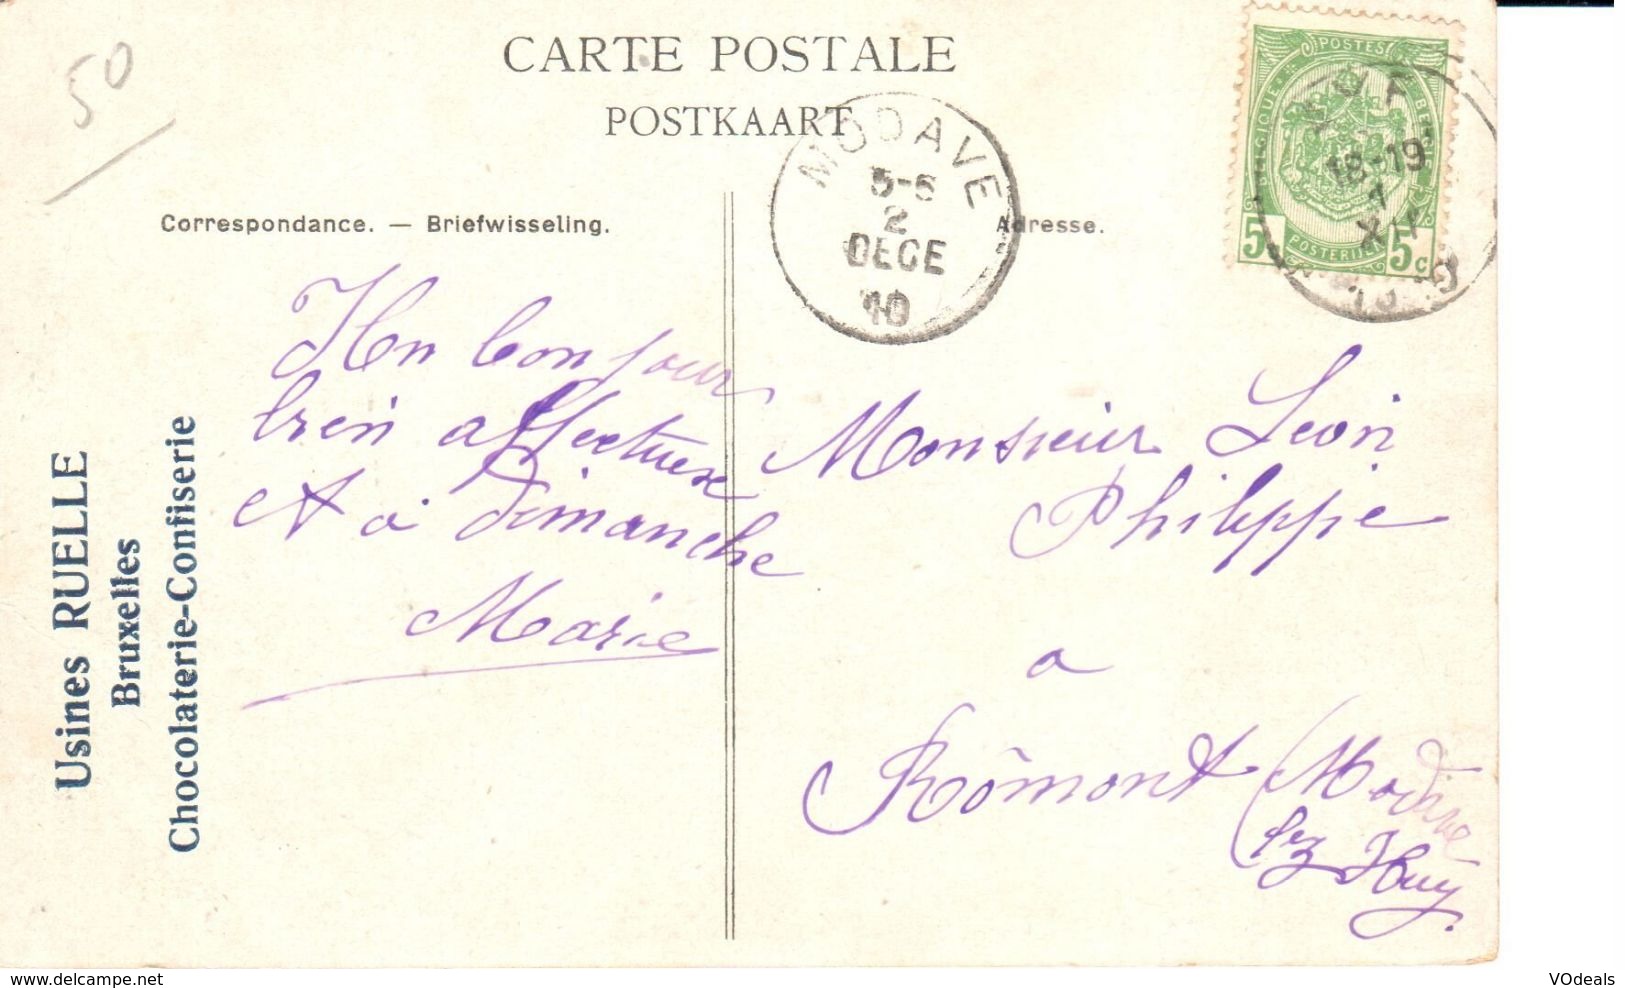 50
CARTE POSTALE
POSTKAART
MODAVE
5-6
2
DECE
10
POSTES
BELGIQUE
BELGIE
POSTERIJEN
5 5c
18-19
1
XII
Correspondance. — Briefwisseling.
Adresse.
Un bonjour
bien affectueux
et à dimanche
Marie
Monsieur Leon
Philippe
a
Rômont (Modave
lez Huy.
Usines RUELLE
Bruxelles
Chocolaterie-Confiserie
VOdeals